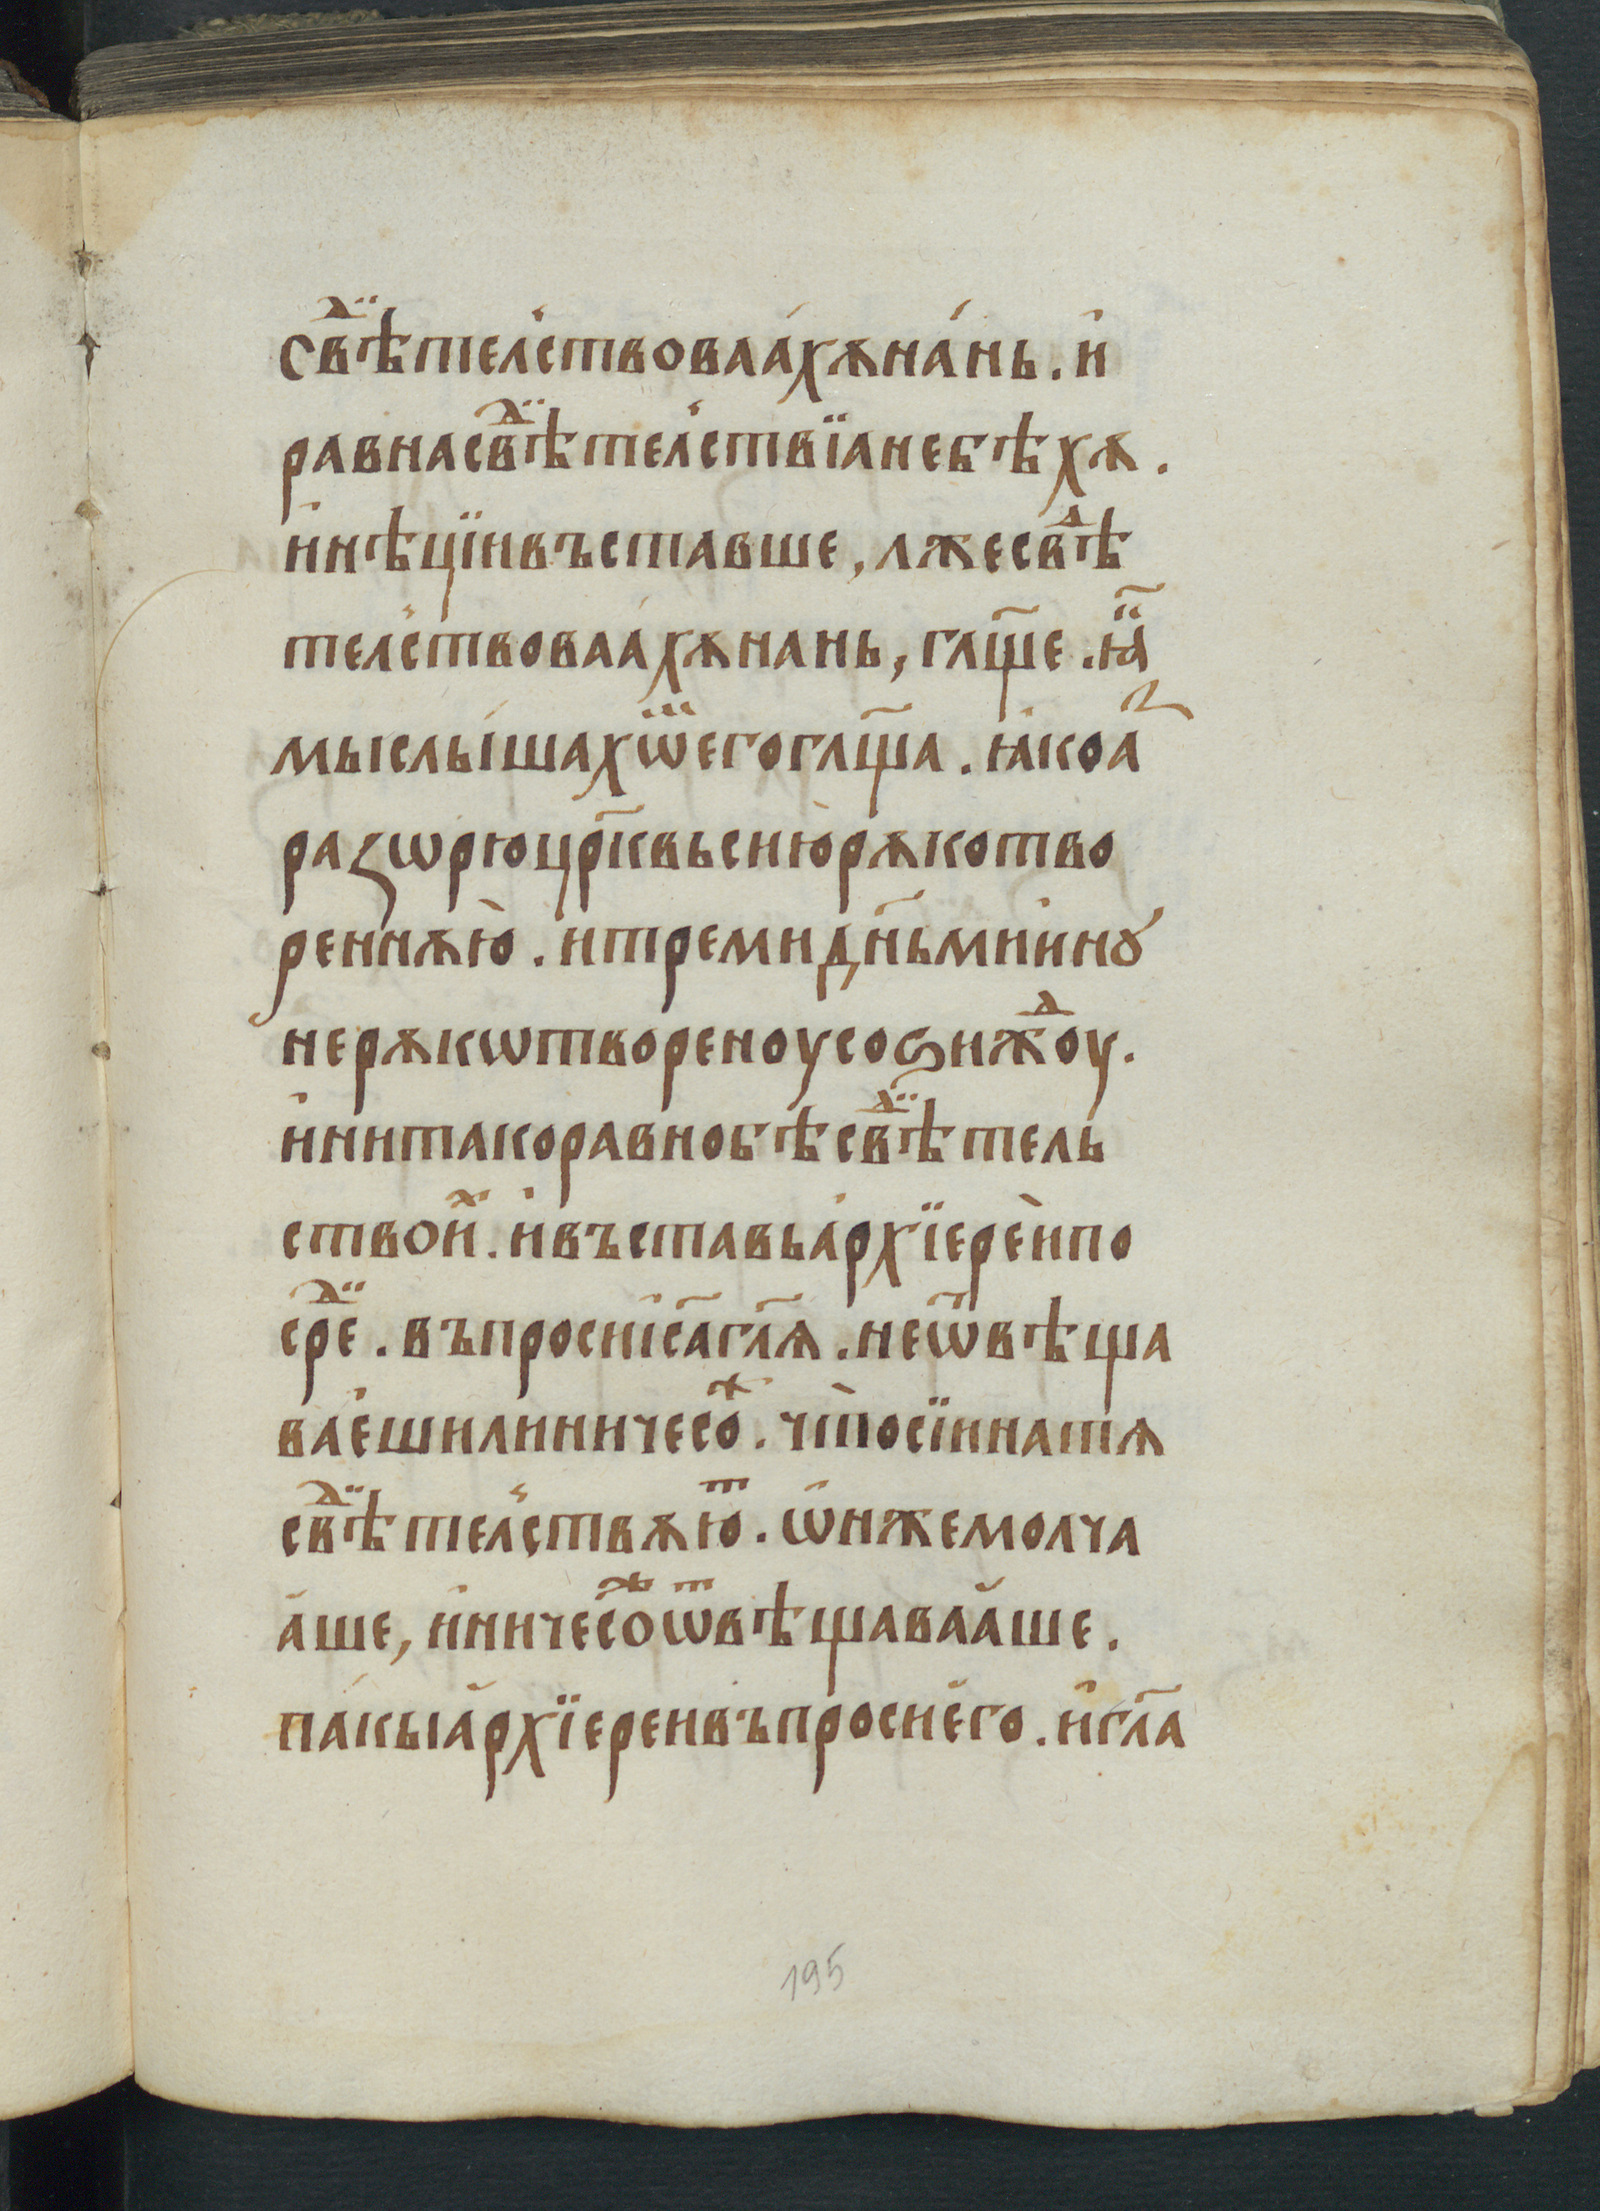 свⷣѣтел̾ствоваа́хѫ на́нь. и҆
равна свⷣѣтел̾ствїа не бѣхѫ.
и҆ нѣцїи въставше, лжесвⷣѣ
тел̾ствоваа́хѫ нань, гл҃ѧще. ꙗ҆҃
мы слы́шахѡⷨ е҆го гл҃ѧща. ꙗ҆ко а҆ꙁ
раꙁѡрю цр҃квь сиѭ рѫкотво
реннѫѫ. и҆ треми дн҃ьми и҆нꙋ
нерѫкѡтвореноу соꙁиждоу.
и҆ ни тако равно бѣ свⷣѣтель
ство и҆ⷯ. и҆ въставь а҆рхїере́и по
срⷣе. въпроси і҆с҃а гл҃ѧ. не ѿвѣща
ва́еши ли ничесоⷤ. что̀ сїи на тѧ
свⷣѣтел̾ствѫюⷮ. ѡ҆н же молча
а҆ше, и҆ ничесоⷤ ѿвѣщаваа҆ше.
па́кы а҆рхїереи въпроси е҆го. и҆ гл҃а
195